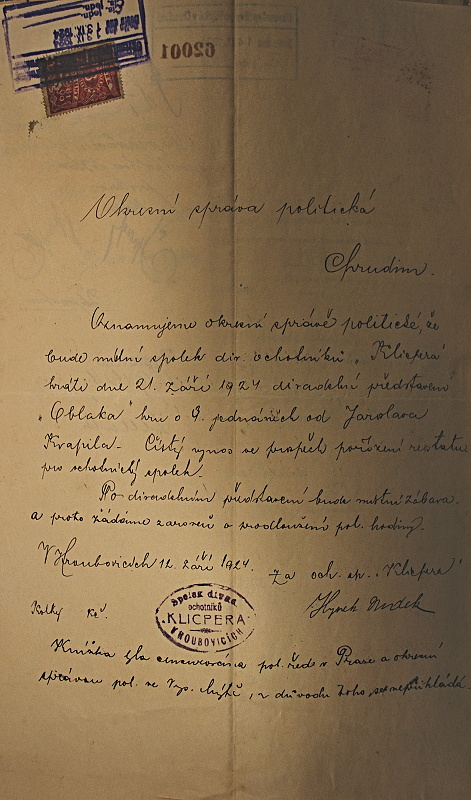 62001
Okresní správa politická
Chrudim.
Oznamujeme okresní správě politické, že
bude místní spolek div. ochotníků „Klicpera"
hráti dne 21. září 1924 divadelní představení
„Oblaka" hru o 4. jednáních od Jaroslava
Kvapila - Čistý výnos ve prospěch pořízení
pro ochotnický spolek.
Po divadelním představení bude místní zábava
a proto žádáme zároveň o prodloužení pol. hodiny.
V Hroubovicích 12. září 1924.
Za och. sp. „Klicpera"
Hynek
Kolky Kč.
Spolek divad.
ochotníků
„KLICPERA"
V HROUBOVICÍCH
Knížka byla censurována pol. řed. v Praze a okresní
správou pol. ve Vys. Mýtě, z důvodu toho se nepřikládá.